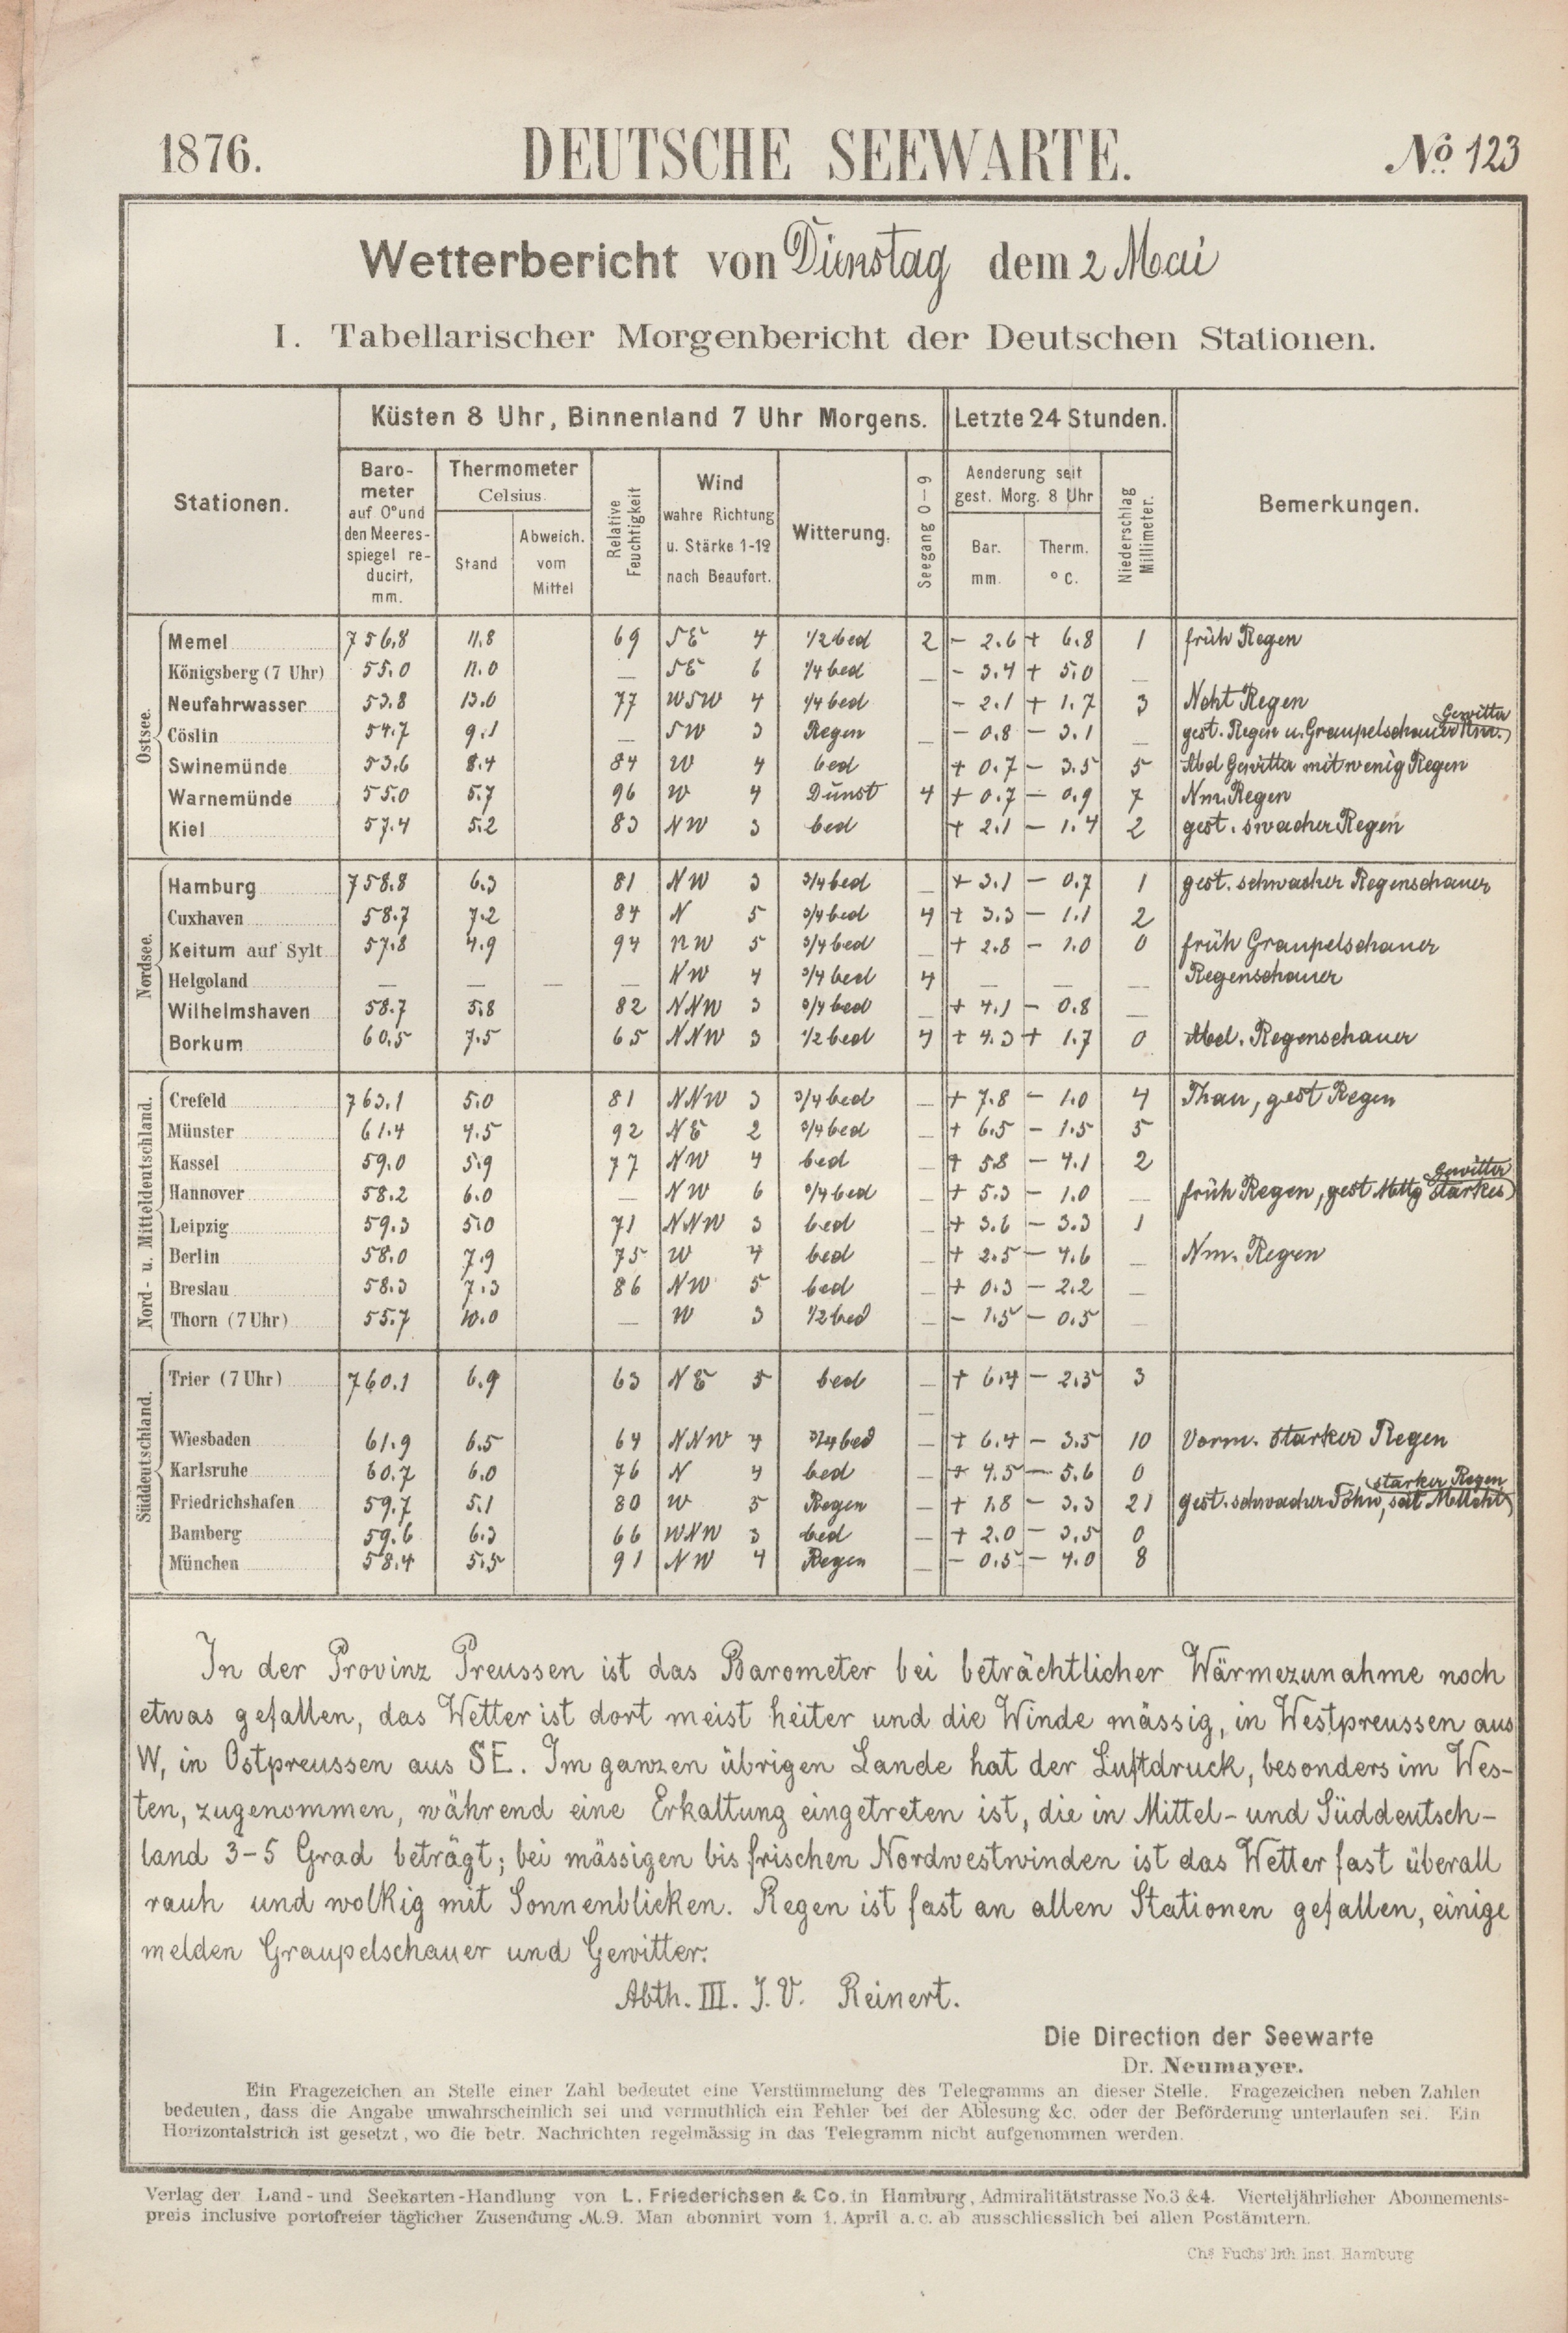 1876. DEUTSCHE SEEWARTE. No. 123
Wetterbericht von Dienstag dem 2 Mai
I. Tabellarischer Morgenbericht der Deutschen Stationen.
Stationen.
Küsten 8 Uhr, Binnenland 7 Uhr Morgens.
Letzte 24 Stunden.
Bemerkungen.
Baro-
meter
auf 0° und
den Meeres-
spiegel re-
ducirt,
mm.
Thermometer
Celsius.
Stand
Abweich.
vom
Mittel
Relative
Feuchtigkeit
Wind
wahre Richtung
u. Stärke 1-12
nach Beaufort.
Witterung.
Seegang 0-9
Aenderung seit
gest. Morg. 8 Uhr
Bar.
mm.
Therm.
° C.
Niederschlag
Millimeter.
Ostsee.
Memel 756.8 11.8 69 SE 4 1/2 bed 2 - 2.6 + 6.8 1 früh Regen
Königsberg (7 Uhr) 55.0 11.0 — SE 6 1/4 bed — - 3.4 + 5.0 —
Neufahrwasser 53.8 13.0 77 WSW 4 1/4 bed - 2.1 + 1.7 3 Ncht Regen
Cöslin 54.7 9.1 — SW 3 Regen — - 0.8 - 3.1 — gest. Regen u. Graupelschauer Gewitter Nm.
Swinemünde 53.6 8.4 84 W 4 bed + 0.7 - 3.5 5 Abd Gewitter mit wenig Regen
Warnemünde 55.0 5.7 96 W 4 Dunst 4 + 0.7 - 0.9 7 Nm. Regen
Kiel 57.4 5.2 83 NW 3 bed + 2.1 - 1.4 2 gest. swacher Regen
Nordsee.
Hamburg 758.8 6.3 81 NW 3 3/4 bed — + 3.1 - 0.7 1 gest. schwacher Regenschauer
Cuxhaven 58.7 7.2 84 N 5 3/4 bed 4 + 3.3 - 1.1 2
Keitum auf Sylt 57.8 4.9 94 NW 5 3/4 bed — + 2.8 - 1.0 0 früh Graupelschauer
Helgoland — — — — NW 4 3/4 bed 4 — — — Regenschauer
Wilhelmshaven 58.7 5.8 82 NNW 3 3/4 bed — + 4.1 - 0.8 —
Borkum 60.5 7.5 65 NNW 3 1/2 bed 4 + 4.3 + 1.7 0 Abd. Regenschauer
Nord- u. Mitteldeutschland.
Crefeld 763.1 5.0 81 NNW 3 3/4 bed — + 7.8 - 1.0 4 Thau, gest Regen
Münster 61.4 4.5 92 NE 2 3/4 bed — + 6.5 - 1.5 5
Kassel 59.0 5.9 77 NW 4 bed — + 5.8 - 4.1 2
Hannover 58.2 6.0 — NW 6 3/4 bed — + 5.3 - 1.0 — früh Regen, gest Mttg starkes Gewitter
Leipzig 59.3 5.0 71 NNW 3 bed — + 3.6 - 3.3 1
Berlin 58.0 7.9 75 W 4 bed — + 2.5 - 4.6 — Nm. Regen
Breslau 58.3 7.3 86 NW 5 bed — + 0.3 - 2.2 —
Thorn (7 Uhr) 55.7 10.0 — W 3 1/2 bed — - 1.5 - 0.5 —
Süddeutschland.
Trier (7 Uhr) 760.1 6.9 63 NE 5 bed — + 6.4 - 2.5 3
—
Wiesbaden 61.9 6.5 64 NNW 4 3/4 bed — + 6.4 - 3.5 10 Vorm. starker Regen
Karlsruhe 60.7 6.0 76 N 4 bed — + 4.5 - 5.6 0
Friedrichshafen 59.7 5.1 80 W 5 Regen — + 1.8 - 3.3 21 gest. schwacher Föhn, seit starker Regen
Bamberg 59.6 6.3 66 WNW 3 bed — + 2.0 - 3.5 0
München 58.4 5.5 91 NW 4 Regen — - 0.5 - 4.0 8
In der Provinz Preussen ist das Barometer bei beträchtlicher Wärmezunahme noch
etwas gefallen, das Wetter ist dort meist heiter und die Winde mässig, in Westpreussen aus
W, in Ostpreussen aus SE. Im ganzen übrigen Lande hat der Luftdruck, besonders im Wes-
ten, zugenommen, während eine Erkaltung eingetreten ist, die in Mittel- und Süddeutsch-
land 3-5 Grad beträgt; bei mässigen bis frischen Nordwestwinden ist das Wetter fast überall
rauh und wolkig mit Sonnenblicken. Regen ist fast an allen Stationen gefallen, einige
melden Graupelschauer und Gewitter.
Abth. III. J. V. Reinert.
Die Direction der Seewarte
Dr. Neumayer.
Ein Fragezeichen an Stelle einer Zahl bedeutet eine Verstümmelung des Telegramms an dieser Stelle. Fragezeichen neben Zahlen
bedeuten, dass die Angabe unwahrscheinlich sei und vermuthlich ein Fehler bei der Ablesung &c. oder der Beförderung unterlaufen sei. Ein
Horizontalstrich ist gesetzt, wo die betr. Nachrichten regelmässig in das Telegramm nicht aufgenommen werden.
Verlag der Land- und Seekarten-Handlung von L. Friederichsen & Co. in Hamburg, Admiralitätstrasse No. 3 & 4. Vierteljährlicher Abonnements-
preis inclusive portofreier täglicher Zusendung M. 9. Man abonnirt vom 1. April a. c. ab ausschliesslich bei allen Postämtern.
Chs Fuchs' lith. Inst. Hamburg